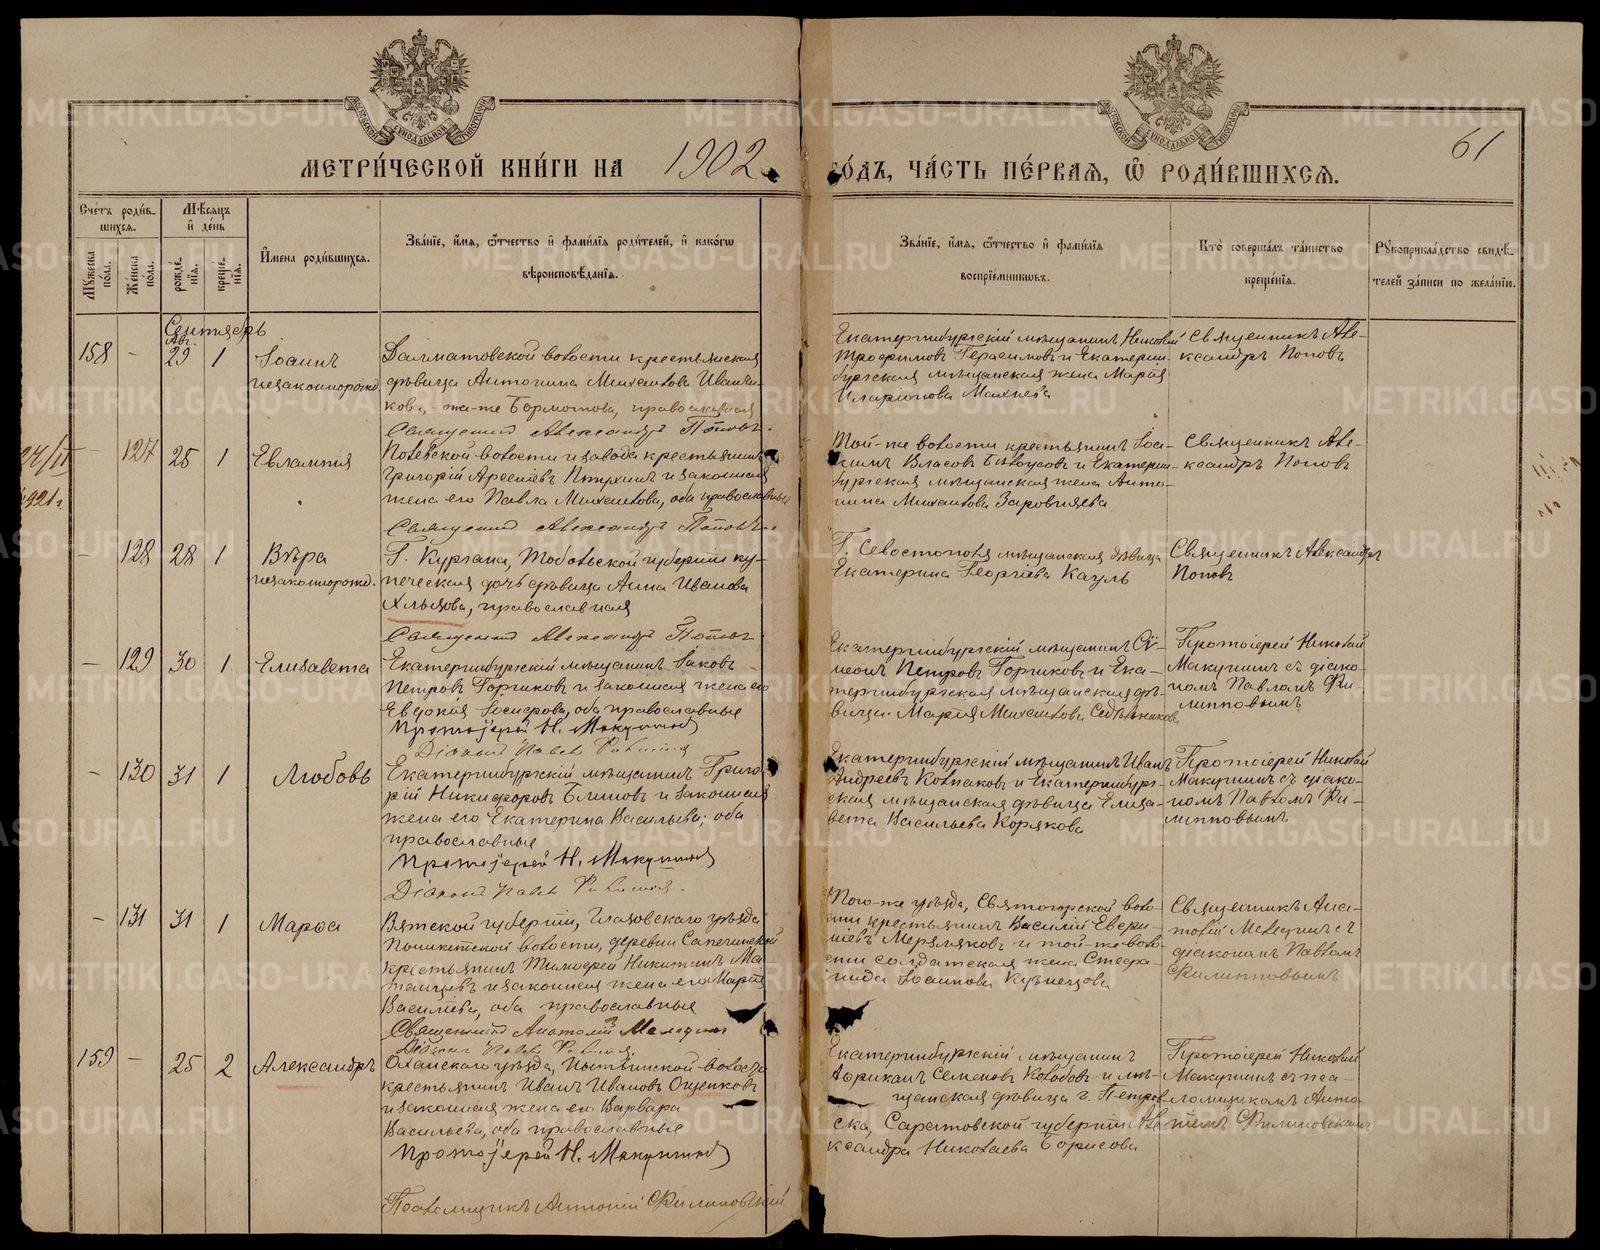 МЕТРИ́ЧЕСКОЙ КНИ́ГИ НА 1902 ГО́ДЪ, ЧА́СТЬ ПЕ́РВАЯ, Ѽ РОДИ́ВШИХСЯ.
61
Сче́тъ роди́в-
шихся.
Му́жеска пола.
Же́нска пола.
Мѣ́сяцъ и҆ де́нь
рожде́нїя.
креще́нїя.
И҆мена роди́вшихся.
Зва́нїе, и҆́мя, ѻ҆́тчество и҆ фами́лїя роди́телей, и҆ како́гѡ
вѣроисповѣ́данїя.
Зва́нїе, и҆́мя, ѻ҆́тчество и҆ фами́лїя
воспрїе́мниковъ.
Кто̀ соверша́лъ та́инство
креще́нїя.
Рꙋкоприкла́дство свидѣ́-
телей за́писи по жела́нїю.
Сентябрь
Авг.
158 - 29 1 Іоаннъ
незаконнорожд.
Далматовской волости крестьянская
дѣвица Антонина Михаилова Иванчи-
кова, она-же Бормотова, православная
Священникъ Александръ Поповъ.
Екатеринбургскій мѣщанинъ Николай
Трофимовъ Герасимовъ и Екатерин-
бургская мѣщанская жена Марія
Иларіонова Махнева
Священникъ Але-
ксандръ Поповъ
- 127 25 1 Евлампія
Полевской волости и завода крестьянинъ
Григорій Арсеніевъ Птухинъ и законная
жена его Павла Михаилова, оба православные
Священникъ Александръ Поповъ.
Той-же волости крестьянинъ Іоа-
кимъ Власовъ Бѣлоусовъ и Екатерин-
бургская мѣщанская жена Анто-
нина Михаилова Заровняева
Священникъ Але-
ксандръ Поповъ
- 128 28 1 Вѣра
незаконнорожд.
Г. Кургана, Тобольской губерніи ку-
печеская дочь дѣвица Анна Иванова
Хлызова, православная
Священникъ Александръ Поповъ
Г. Севастополя мѣщанская дѣвица
Екатерина Георгіева Кауль
Священникъ Александръ
Поповъ
- 129 30 1 Елизавета
Екатеринбургскій мѣщанинъ Іаковъ
Петровъ Горшковъ и законная жена его
Евдокія Іосифова, оба православные
Протоіерей Н. Макушинъ
Діаконъ Павелъ
Екатеринбургскій мѣщанинъ Си-
меонъ Петровъ Горшковъ и Ека-
теринбургская мѣщанская дѣ-
вица Марія Михаилова Седельникова
Протоіерей Николай
Макушинъ съ діако-
номъ Павломъ Фи-
липповымъ
- 130 31 1 Любовь
Екатеринбургскій мѣщанинъ Григо-
рій Никифоровъ Блиновъ и законная
жена его Екатерина Васильева, оба
православные
Протоіерей Н. Макушинъ
Діаконъ Павелъ
Екатеринбургскій мѣщанинъ Иванъ
Андреевъ Колпаковъ и Екатеринбург-
ская мѣщанская дѣвица Елиза-
вета Васильева Корякова
Протоіерей Николай
Макушинъ съ діако-
номъ Павломъ Фи-
липповымъ
- 131 31 1 Марѳа
Вятской губерніи, Глазовскаго уѣзда
волости, деревни
крестьянинъ Тимофей Никитинъ
и законная жена его Марія
Васильева, оба православные
Священникъ Анатолій
Діаконъ Павелъ
Того-же уѣзда, Святогорской воло-
сти крестьянинъ Василій
Меряковъ и той-же воло-
сти солдатская жена Стефа-
нида Іоаннова Кузнецова
Священникъ Ана-
толій съ
діакономъ Павломъ
Филипповымъ
159 - 25 2 Александръ
Оханскаго уѣзда, волости
крестьянинъ Иванъ Ивановъ Ощепковъ
и законная жена его Варвара
Васильева, оба православные
Протоіерей Н. Макушинъ
Псаломщикъ Антоній
Екатеринбургскій мѣщанинъ
Африканъ Семеновъ Колобовъ и мѣ-
щанская дѣвица г. Петров-
ска, Саратовской губерніи Але-
ксандра Николаева Борисова
Протоіерей Николай
Макушинъ съ пса-
ломщикомъ Анто-
ніемъ
METRIKI.GASO-URAL.RU